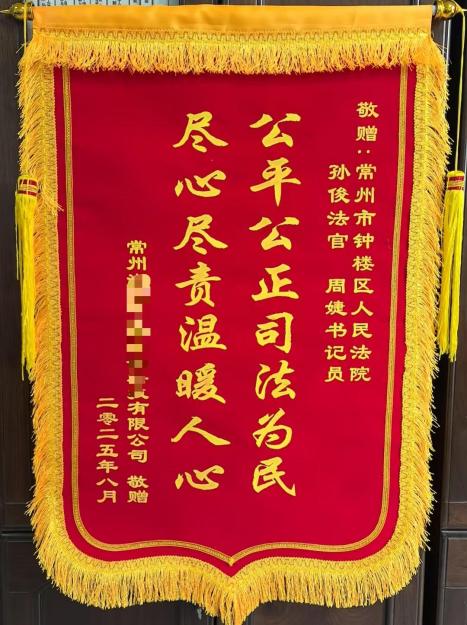 敬赠:常州市钟楼区人民法院
孙俊法官 周婕书记员
公平公正司法为民
尽心尽责温暖人心
常州 有限公司 敬赠
二零二五年八月